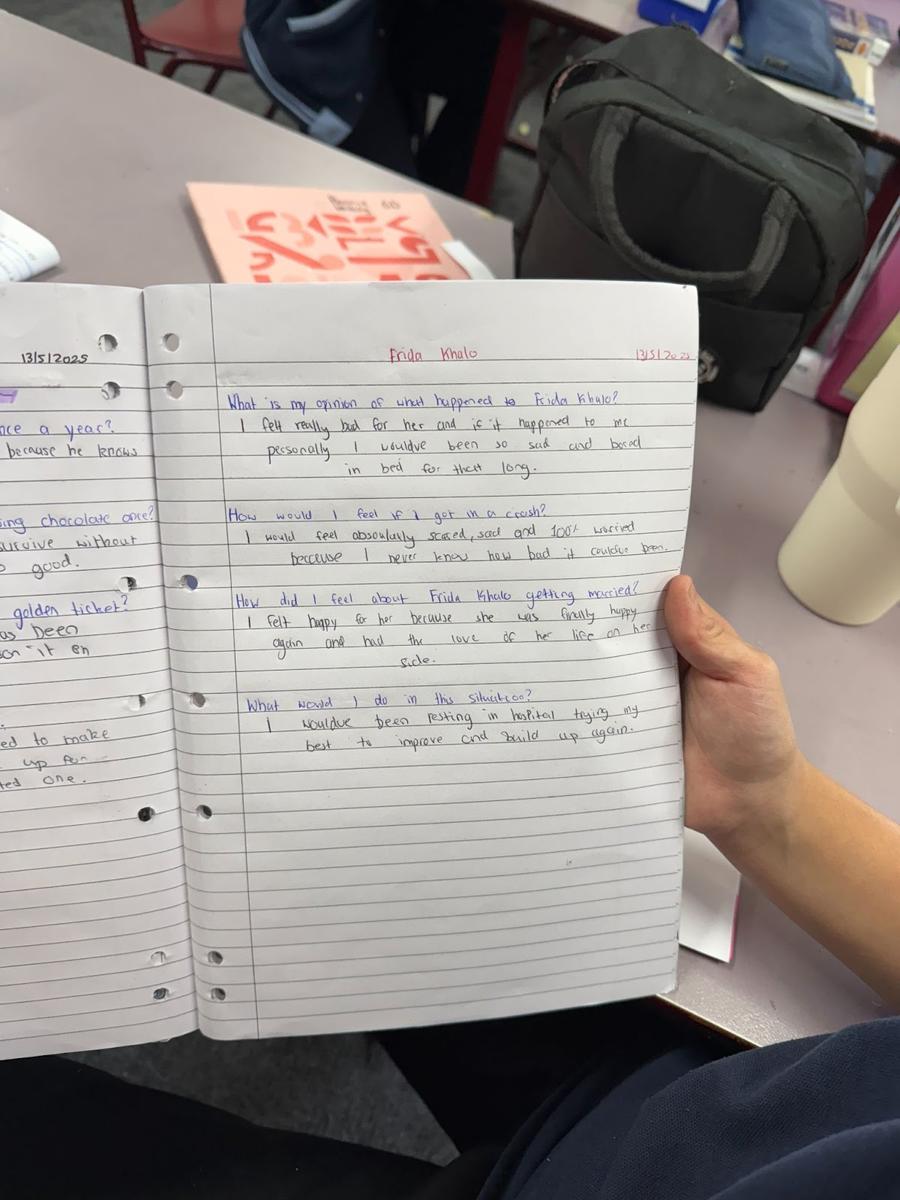 13/5/2025
nce a year?
because he knows
sing chocolate once?
survive without
good.
golden ticket?
as been
it en
ed to make
up for
ted one.
Frida Khalo
13/5/2025
What is my opinion of what happened to Frida Khalo?
I felt really bad for her and if it happened to me
personally I wouldve been so sad and bored
in bed for that long.
How would I feel if I got in a crash?
I would feel absoulutly scared, sad and 100% worried
because I never know how bad it couldve been.
How did I feel about Frida Khalo getting married?
I felt happy for her because she was finally happy
again and had the love of her life on her
side.
What would I do in this situation?
I wouldve been resting in hospital trying my
best to improve and build up again.